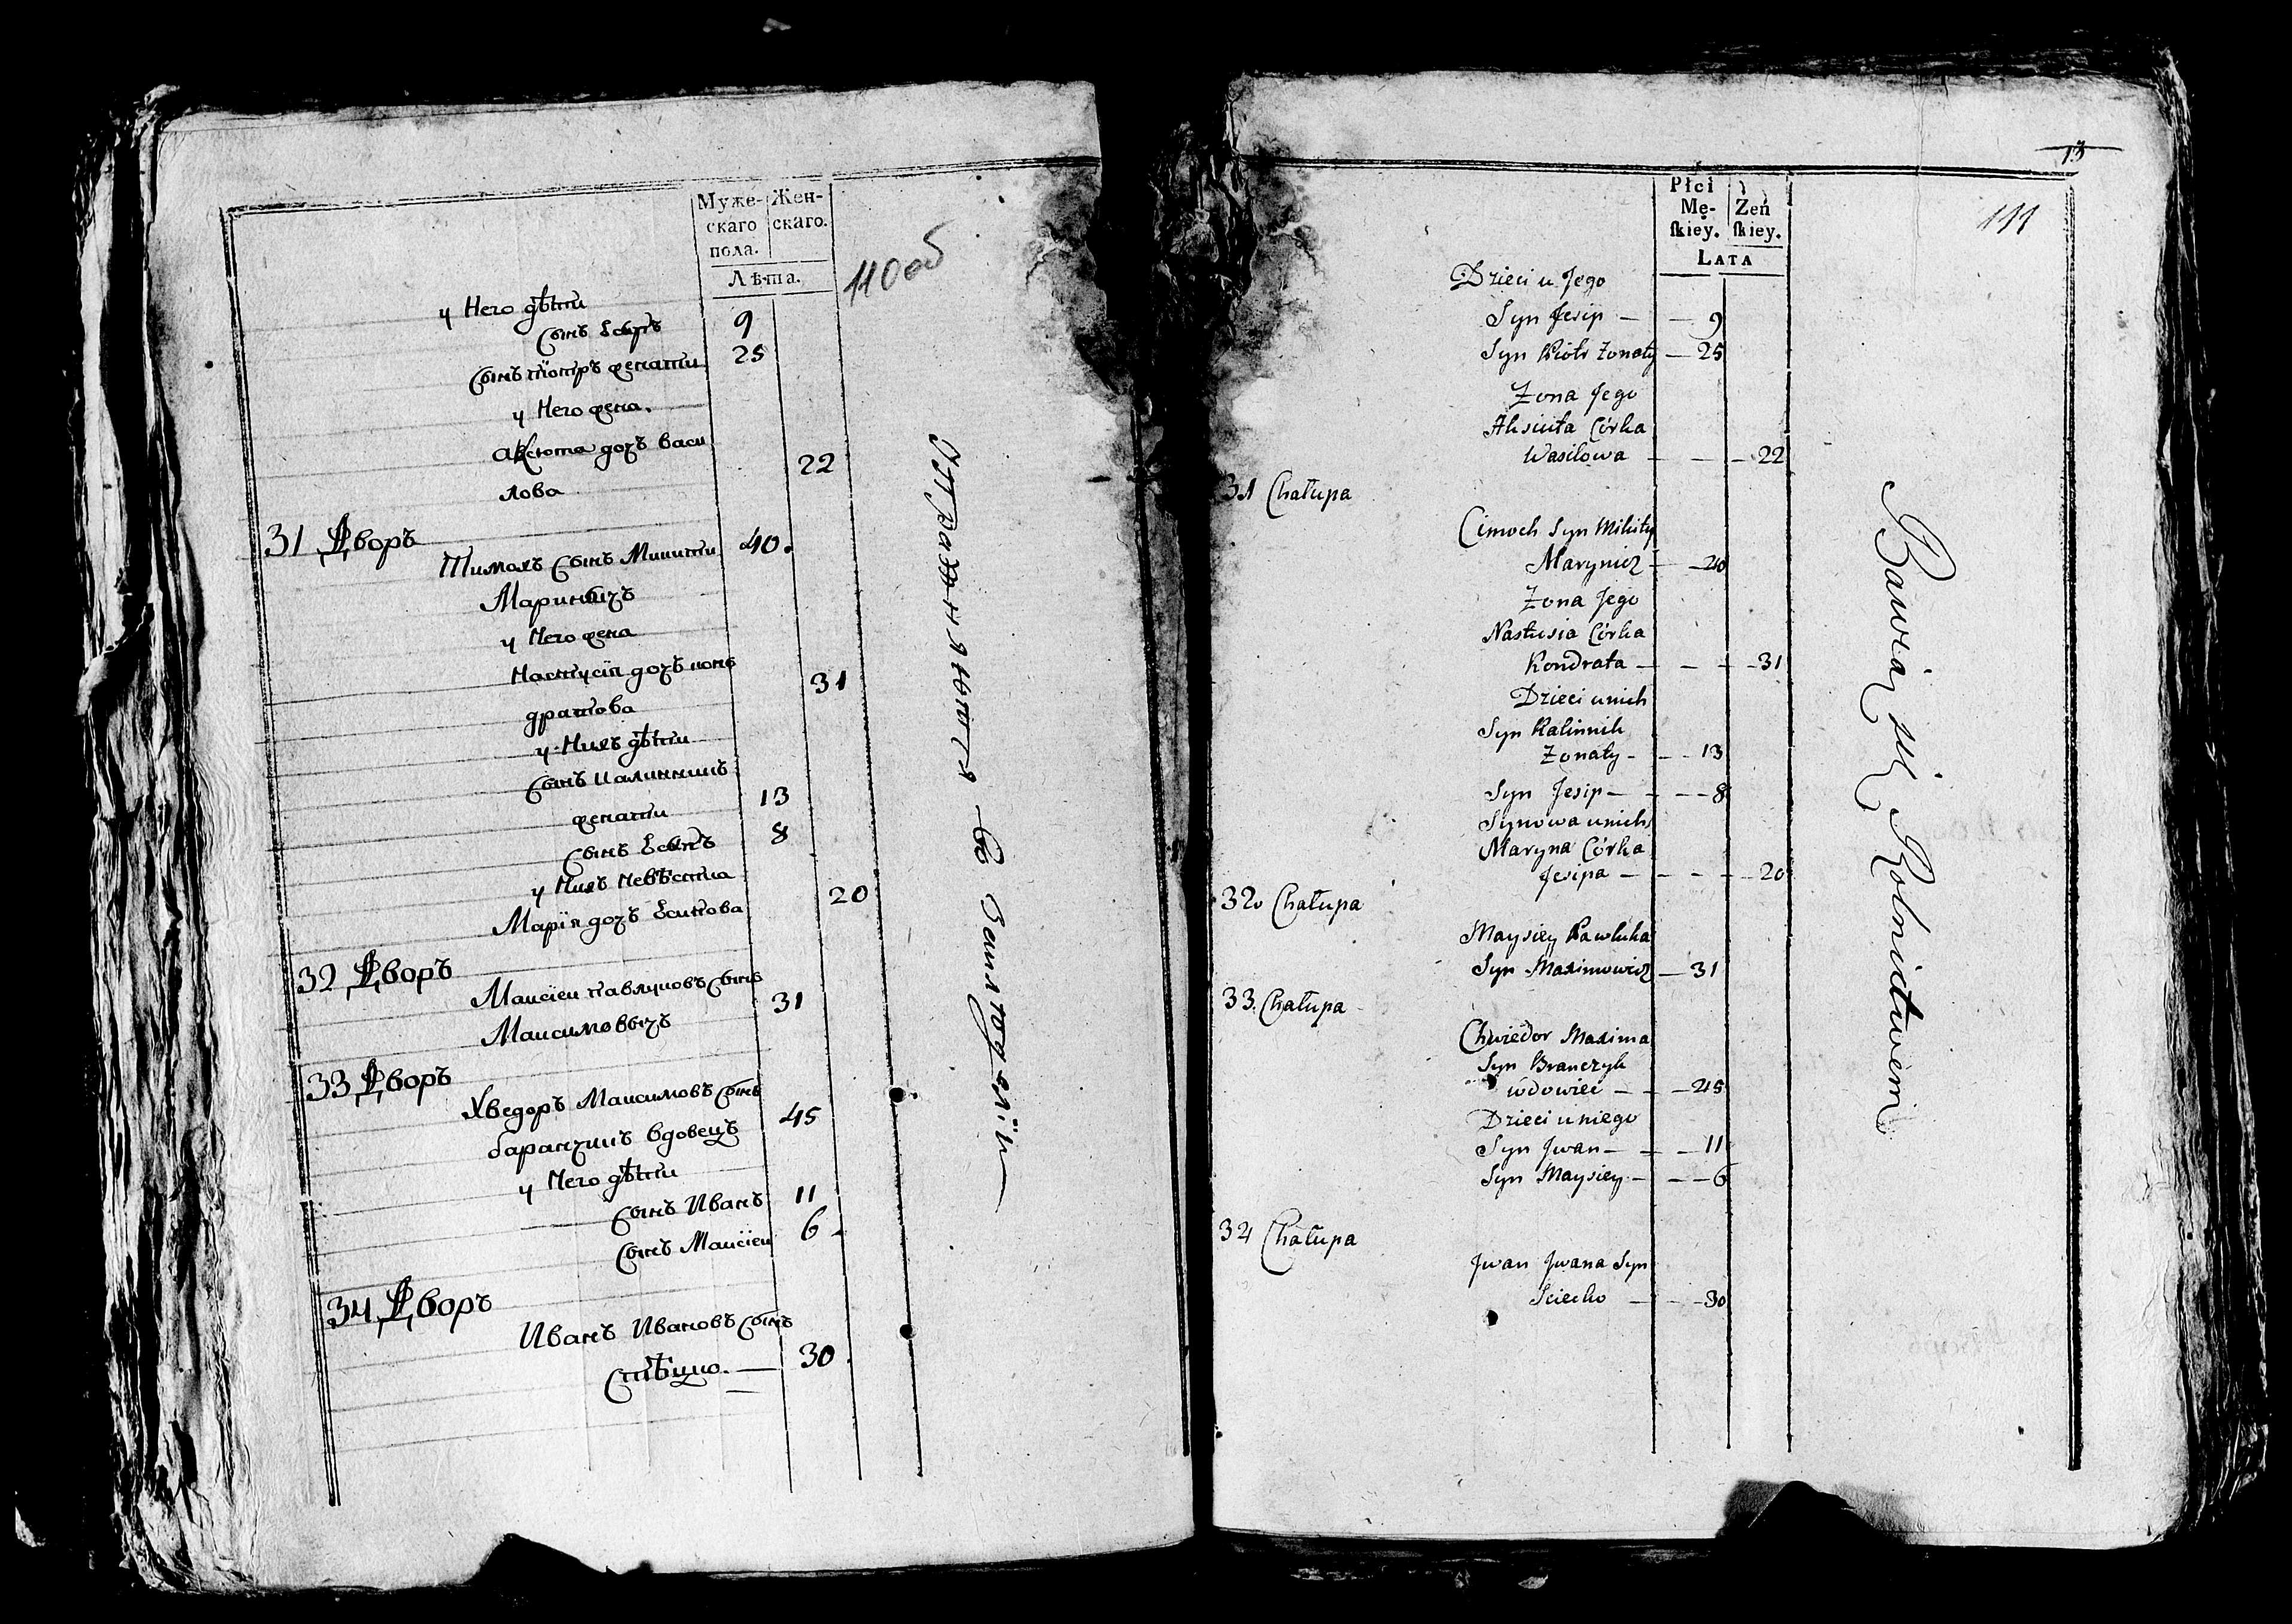 Муже-
скаго
пола.
Жен-
скаго.
Лѣта.
110об
у Него дѣти
Сынъ Есипъ 9
Сынъ Піотръ женати 25
у Него жена.
Аксюта дочъ васи
лова 22
31 Дворъ
Тимохъ Сынъ Микити 40.
Мариничъ
у Него жена
Настусія дочъ кон
дратова 31
у Нихъ дѣти
Сынъ Калинникъ
женати 13
Сынъ Есипъ 8
у Нихъ Невѣстка
Марія дочъ Есипова 20
32 Дворъ
Маисіеи павлуковъ Сынъ
Максимовичъ 31
33 Дворъ
Хведоръ Максимовъ Сынъ
баранчикъ вдовецъ 45
у Него дѣти
Сынъ Иванъ 11
Сынъ Маисіеи 6
34 Дворъ
Иванъ Ивановъ Сынъ
Стѣцко. — 30
Упражняются во Земледелїи
13
111
Płci
Mę-
ſkiey.
Zeń
ſkiey.
LATA
Dzieci u Jego
Syn Jesip — — 9
Syn Piotr Zonaty — 25
Zona Jego
Aksiuta Córka
Wasilowa — — — 22
31 Chałupa
Cimoch Syn Mikity
Marynicz — — 40
Zona Jego
Nastusia Córka
Kondrata — — — 31
Dzieci u nich
Syn Kalinnik
Zonaty — — — 13
Syn Jesip — — — — 8
Synowa u nich
Maryna Córka
Jesipa — — — — 20
32 Chałupa
Maysiey Pawluka
Syn Maximowicz — 31
33 Chałupa
Chwiedor Maxima
Syn Branczyk
wdowiec — — — 45
Dzieci u niego
Syn Jwan — — — 11
Syn Maysiey — — — 6
34 Chałupa
Jwan Jwana Syn
Sciecko — — — 30
Bawią się Rolnictwem